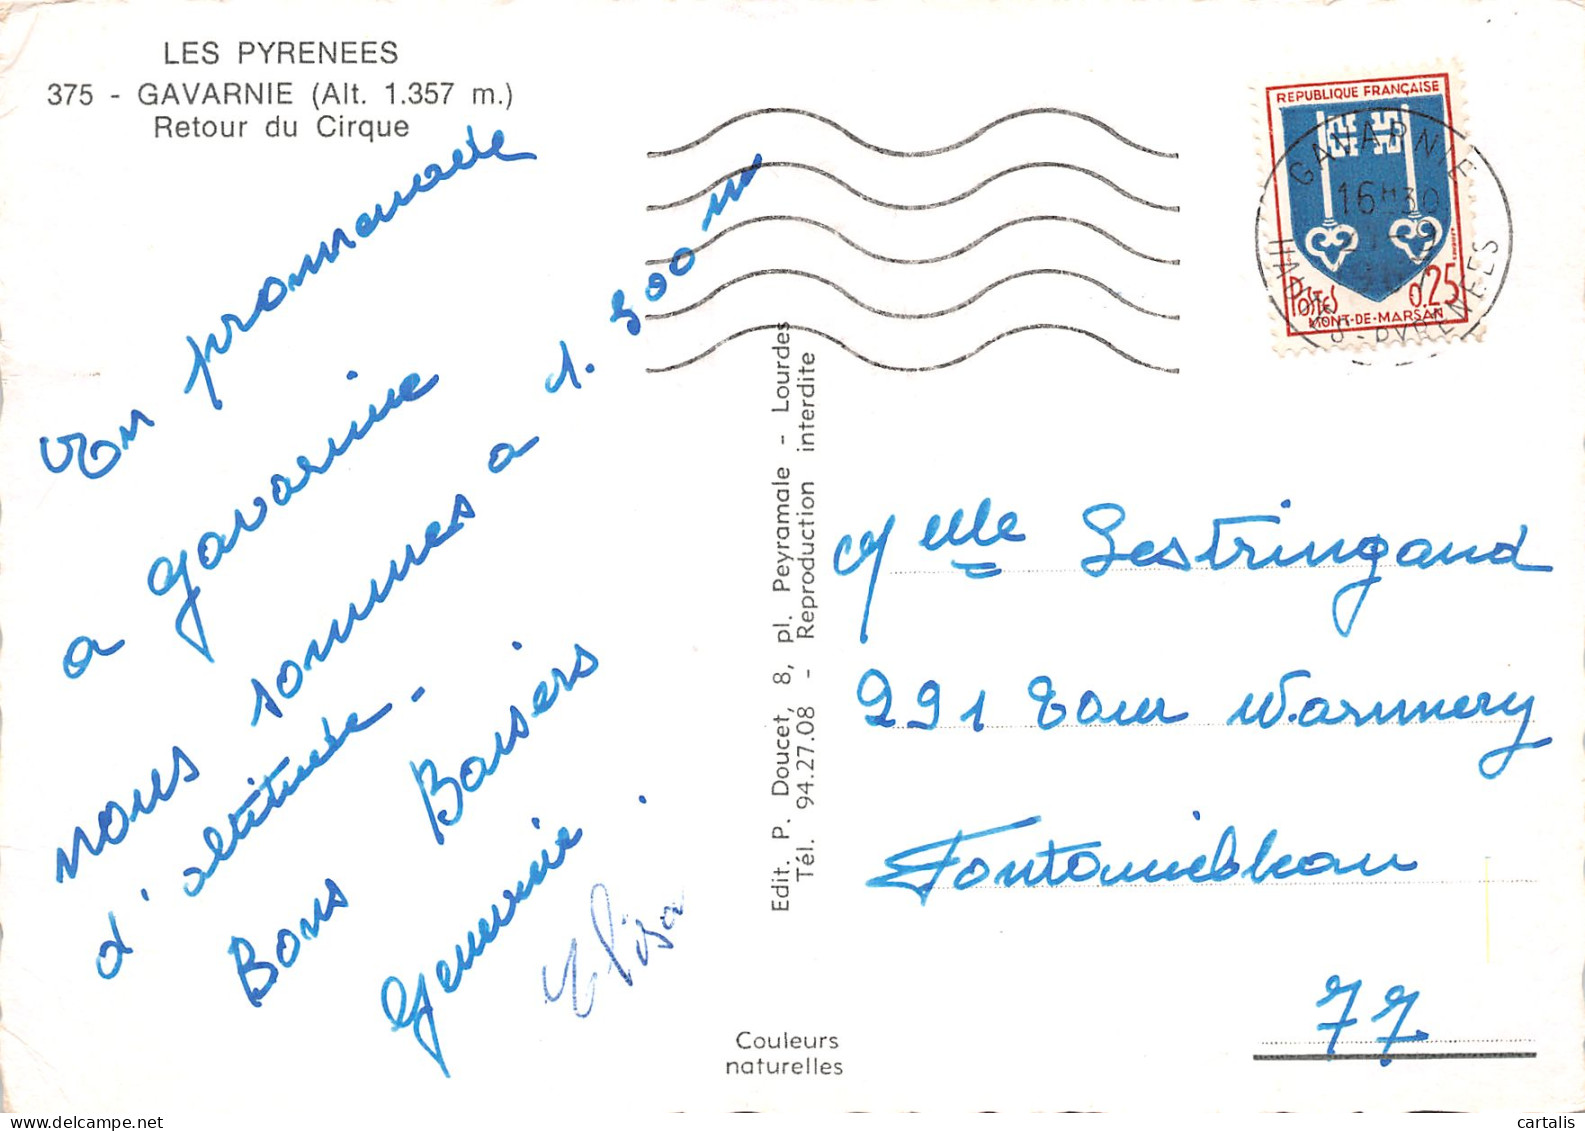 LES PYRENEES
375 - GAVARNIE (Alt. 1.357 m.)
Retour du Cirque
En promenade
a gavarnie
nous sommes a 1.500 m
d'altitude -
Bons Baisers
Genevieve.
Elisa
Edit. P. Doucet, 8, pl. Peyramale - Lourdes
Tél. 94.27.08 - Reproduction interdite
Couleurs
naturelles
REPUBLIQUE FRANÇAISE
POSTES
0.25
MONT-DE-MARSAN
GAVARNIE
16H30
HAUTES-PYRENEES
Melle Lestringand
291 Tour Warmery
Fontainebleau
77
cartalis